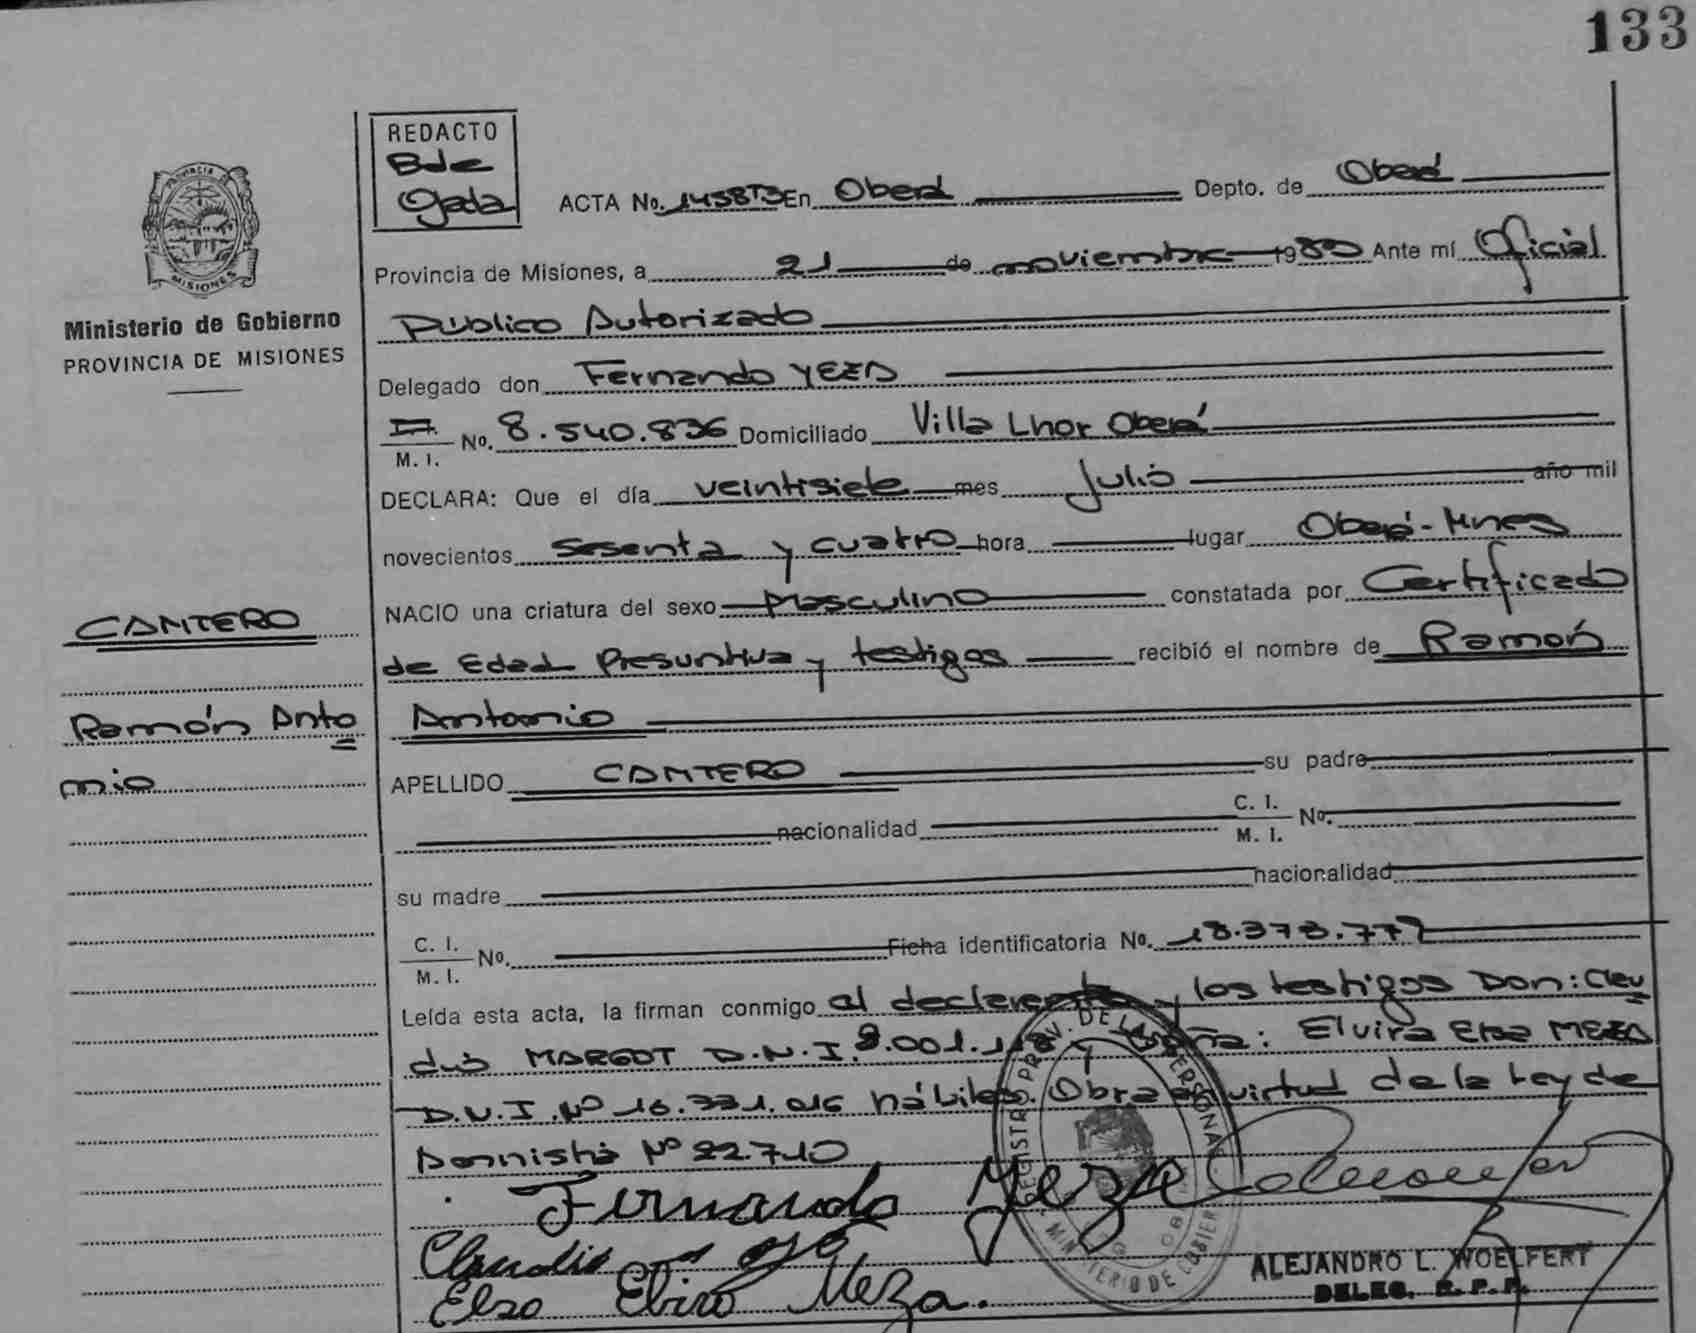 133
REDACTO
ACTA No. 1458T3 En Oberá Depto. de Oberá
Provincia de Misiones, a 21 de noviembre 19 Ante mí Oficial
Ministerio de Gobierno
PROVINCIA DE MISIONES
Público Autorizado
Delegado don Fernando
M. I. No. 8.540.836 Domiciliado Villa Lhor Oberá
DECLARA: Que el día veintisiete mes Julio año mil
novecientos Sesenta y cuatro hora lugar Oberá - Mnes
NACIO una criatura del sexo Masculino constatada por Certificado
de Edad Presuntiva y testigos recibió el nombre de Ramón
Antonio
CANTERO
Ramón Anto
nio
APELLIDO CANTERO su padre
nacionalidad C. I. M. I. No.
su madre nacionalidad
C. I. M. I. No. Ficha identificatoria No. 18.373.777
Leída esta acta, la firman conmigo el declarante y los testigos Don: Clau
dio MARGOT D.N.I. : Elvira Elsa MEZA
D.N.I. Nº 16.331.016 hábiles. Obra en virtud de la Ley de
Amnistía Nº 22.710
Fernando
Claudio
Elsa Elvira Meza.
ALEJANDRO L. WOELFERT
DELEG. R. P. P.